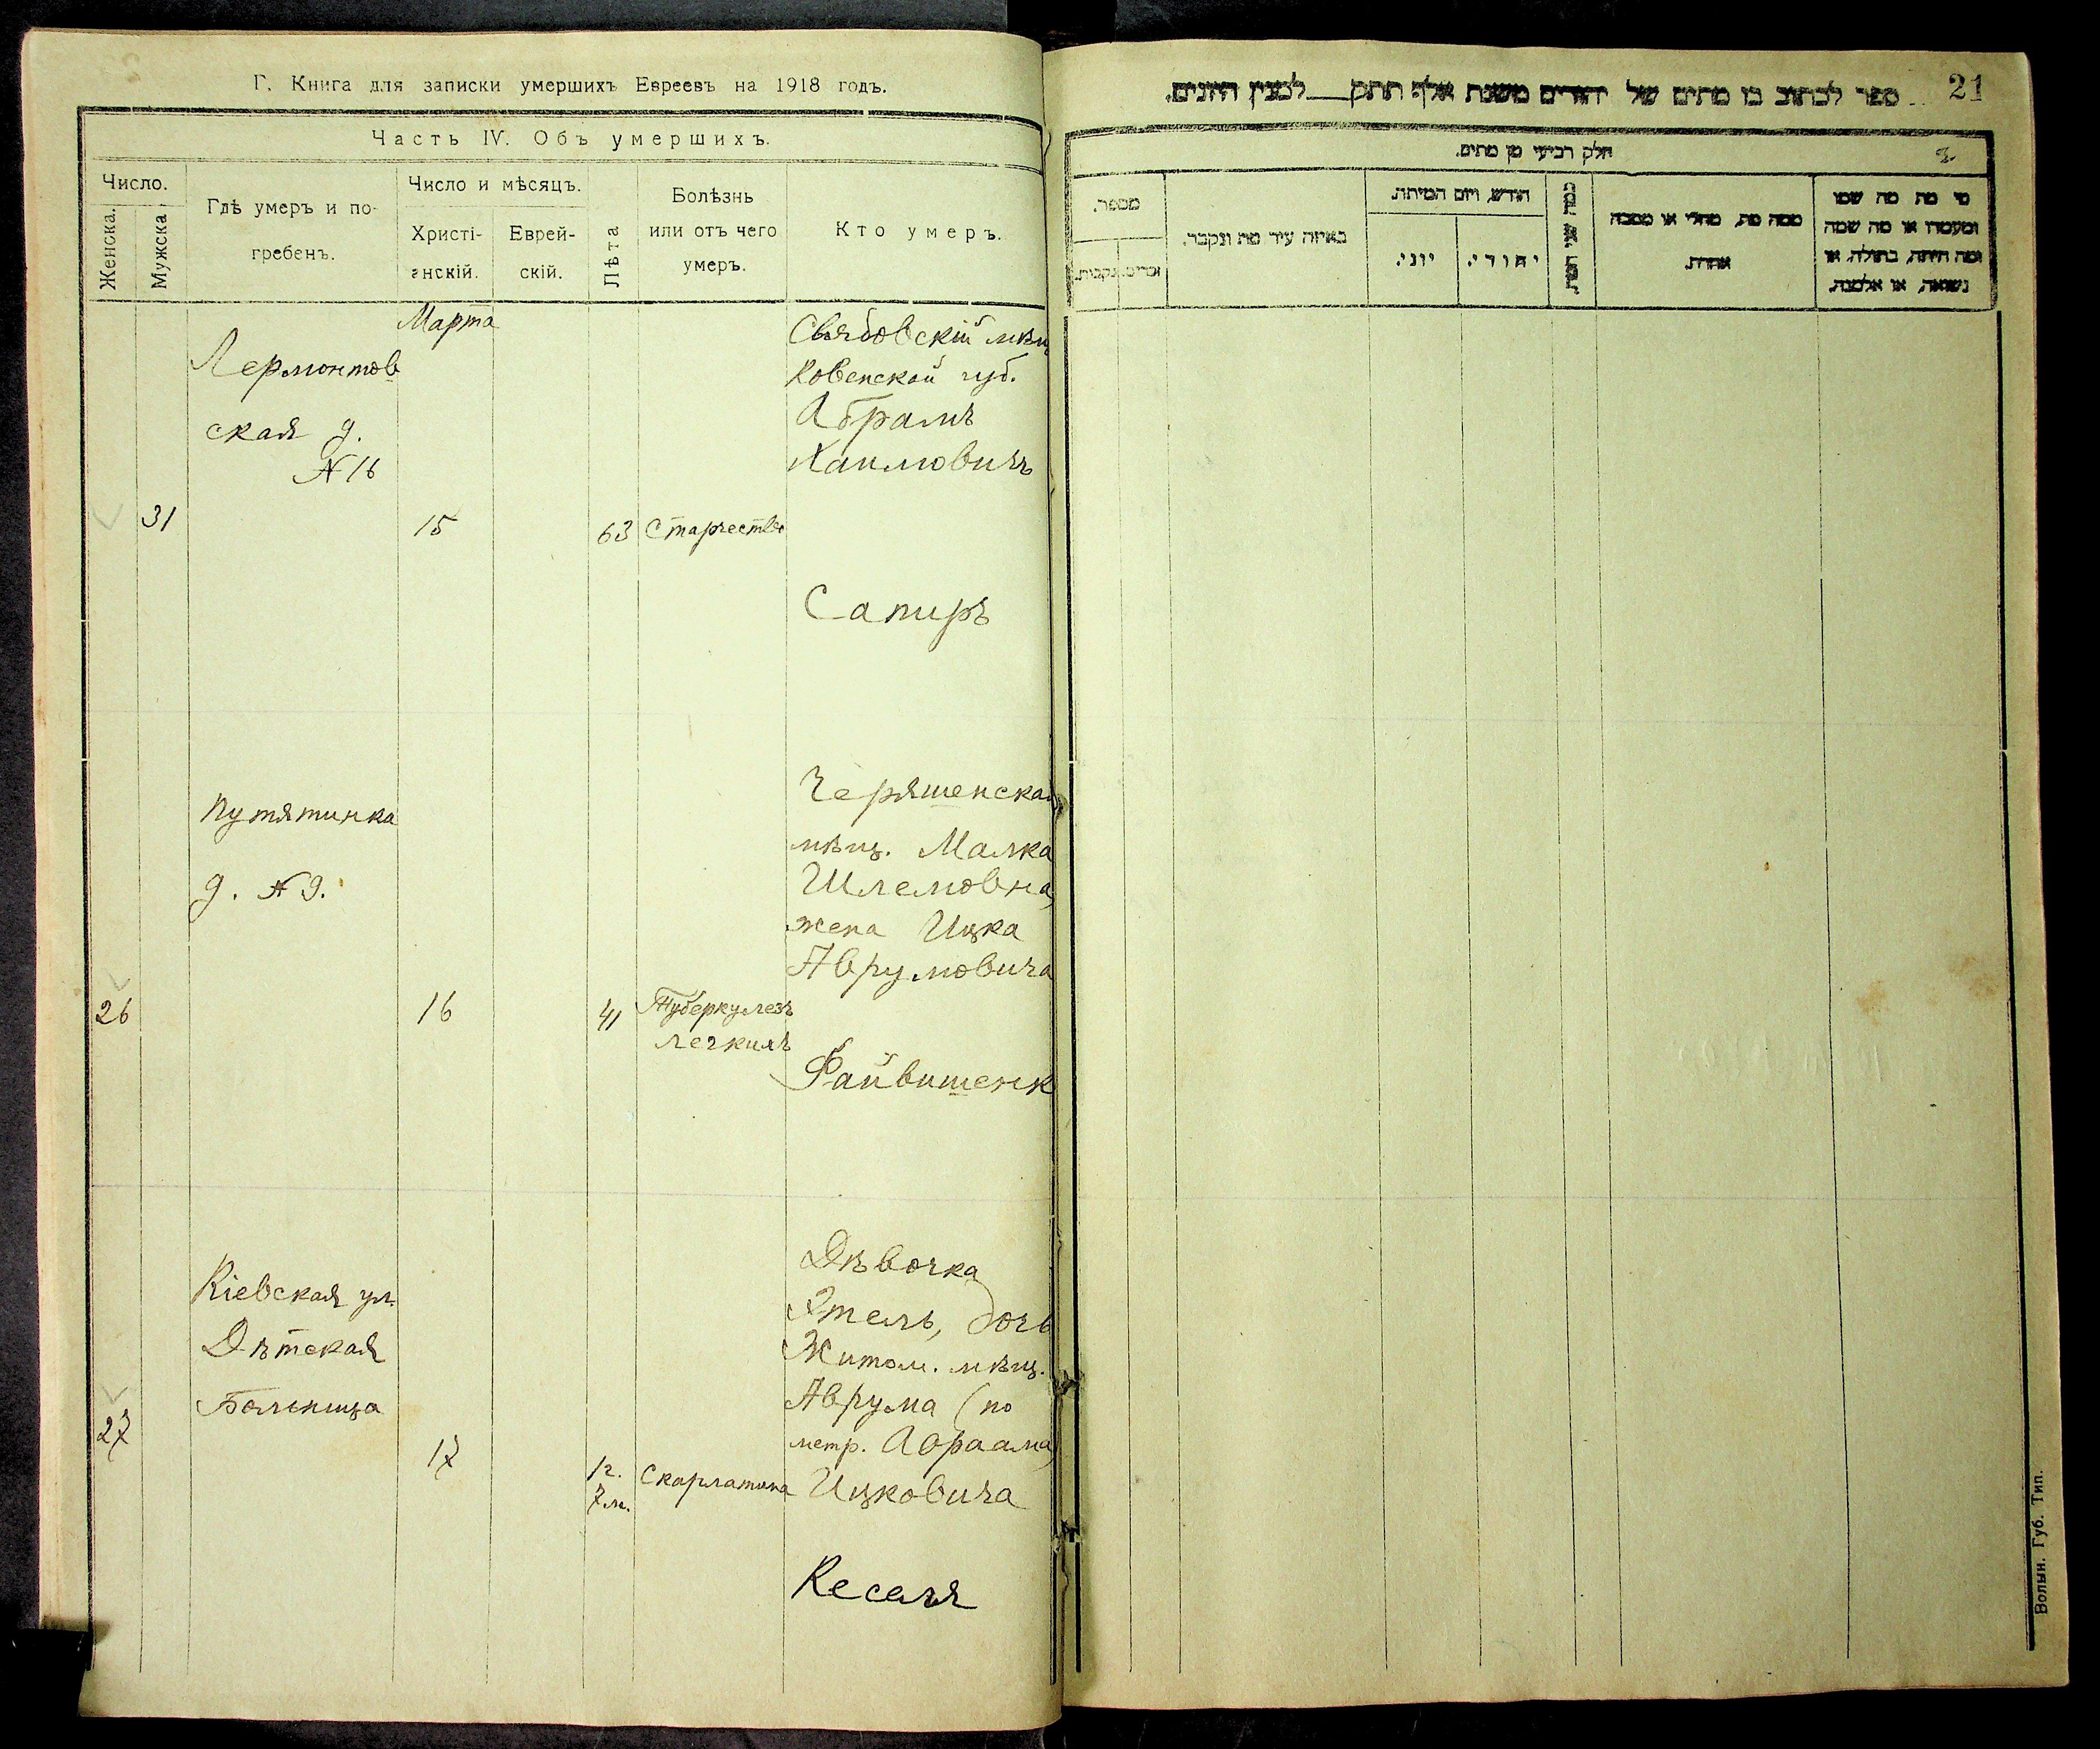 Г. Книга для записки умершихъ Евреевъ на 1918 годъ.
Часть IV. Объ умершихъ.
Число.
Женска.
Мужска
Гдѣ умеръ и по-
гребенъ.
Число и мѣсяцъ.
Христі-
анскій.
Еврей-
скій.
Лѣта
Болѣзнь
или отъ чего
умеръ.
Кто умеръ.
Марта
31
Лермонтов
ская д.
№ 16
15
63
Старчество
мѣщ
Ковенской губ.
Абрамъ
Сапиръ
26
Путятинка
д. № 9.
16
41
Туберкулезъ
легкихъ
мѣщ. Малка
Шлемовна,
жена Ицка
Аврумовича
Файвишенк
27
Кіевская ул.
Дѣтская
Больница
17
1 г.
7 м.
Скарлатина
Дѣвочка
Этель, дочь
Житом. мѣщ.
Аврума (по
метр. Абраама)
Ицковича
Кесель
21
ספר לכתוב בו מתים של יהודים משנת אלף תתק___למנין היונים.
חלק רביעי מן מתים.
2.
מספר.
זכרים.
נקבות.
באיזה עיר מת ונקבר.
חודש ויום המיתה.
יוני.
יהודי.
כמה שני המת.
ממה מת, מחלי או מסבה
אחרת
מי מת מה שמו
ומעמדו או מה שמה
ומה היתה, בתולה, או
נשואה, או אלמנה.
Волын. Губ. Тип.